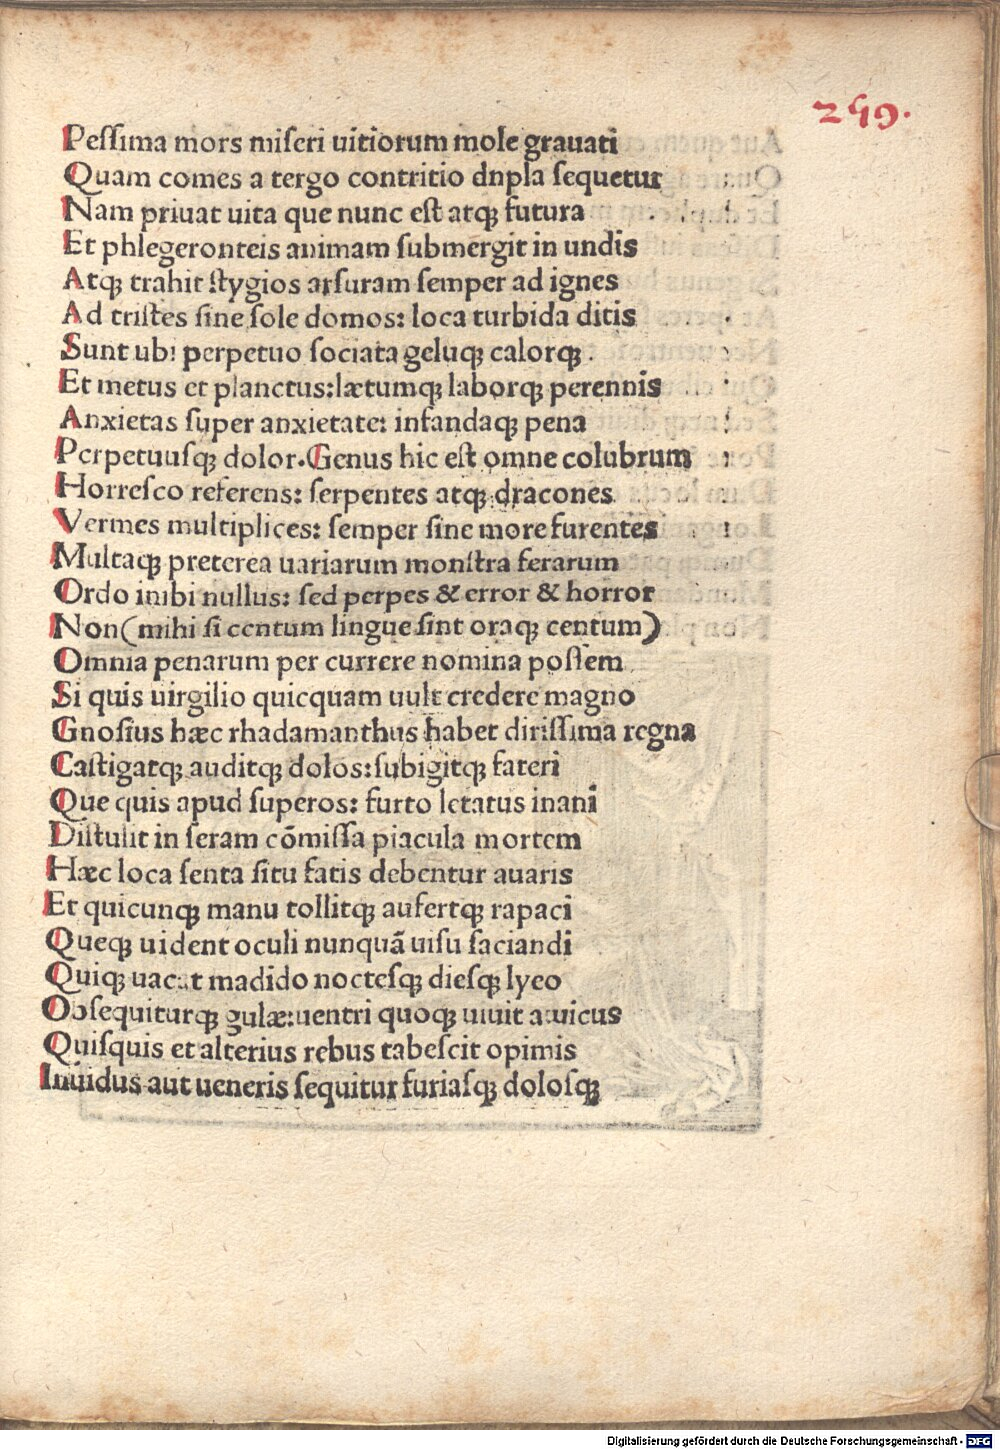 259.
Pessima mors miseri uitiorum mole grauati
Quam comes a tergo contritio dnpla sequetur
Nam priuat uita que nunc est atqꝫ futura
Et phlegeronteis animam submergit in undis
Atqꝫ trahit stygios arsuram semper ad ignes
Ad tristes sine sole domos: loca turbida ditis
Sunt ubi perpetuo sociata geluqꝫ calorqꝫ.
Et metus et planctus: lætumqꝫ laborqꝫ perennis
Anxietas super anxietate: infandaqꝫ pena
Perpetuusqꝫ dolor. Genus hic est omne colubrum
Horresco referens: serpentes atqꝫ dracones
Vermes multiplices: semper sine more furentes
Multaqꝫ preterea uariarum monstra ferarum
Ordo inibi nullus: sed perpes & error & horror
Non (mihi si centum lingue sint oraqꝫ centum)
Omnia penarum per currere nomina possem
Si quis uirgilio quicquam uult credere magno
Gnosius hæc rhadamanthus habet dirissima regna
Castigatqꝫ auditqꝫ dolos: subigitqꝫ fateri
Que quis apud superos: furto letatus inani
Distulit in seram cõmissa piacula mortem
Hæc loca senta situ fatis debentur auaris
Et quicunqꝫ manu tollitqꝫ aufertqꝫ rapaci
Queqꝫ uident oculi nunquã uisu saciandi
Quiqꝫ uacat madido noctesqꝫ diesqꝫ lyeo
Obsequiturqꝫ gulæ: uentri quoqꝫ uiuit amicus
Quisquis et alterius rebus tabescit opimis
Inuidus aut ueneris sequitur furiasqꝫ dolosqꝫ
Digitalisierung gefördert durch die Deutsche Forschungsgemeinschaft - DFG